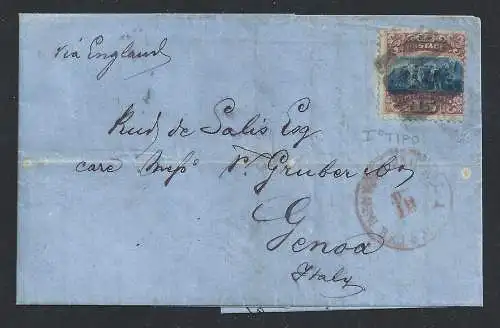 via England
POSTAGE
15
I° TIPO
Rud de Salis Esq
care Messº V. Gruber & Co
Genoa
Italy